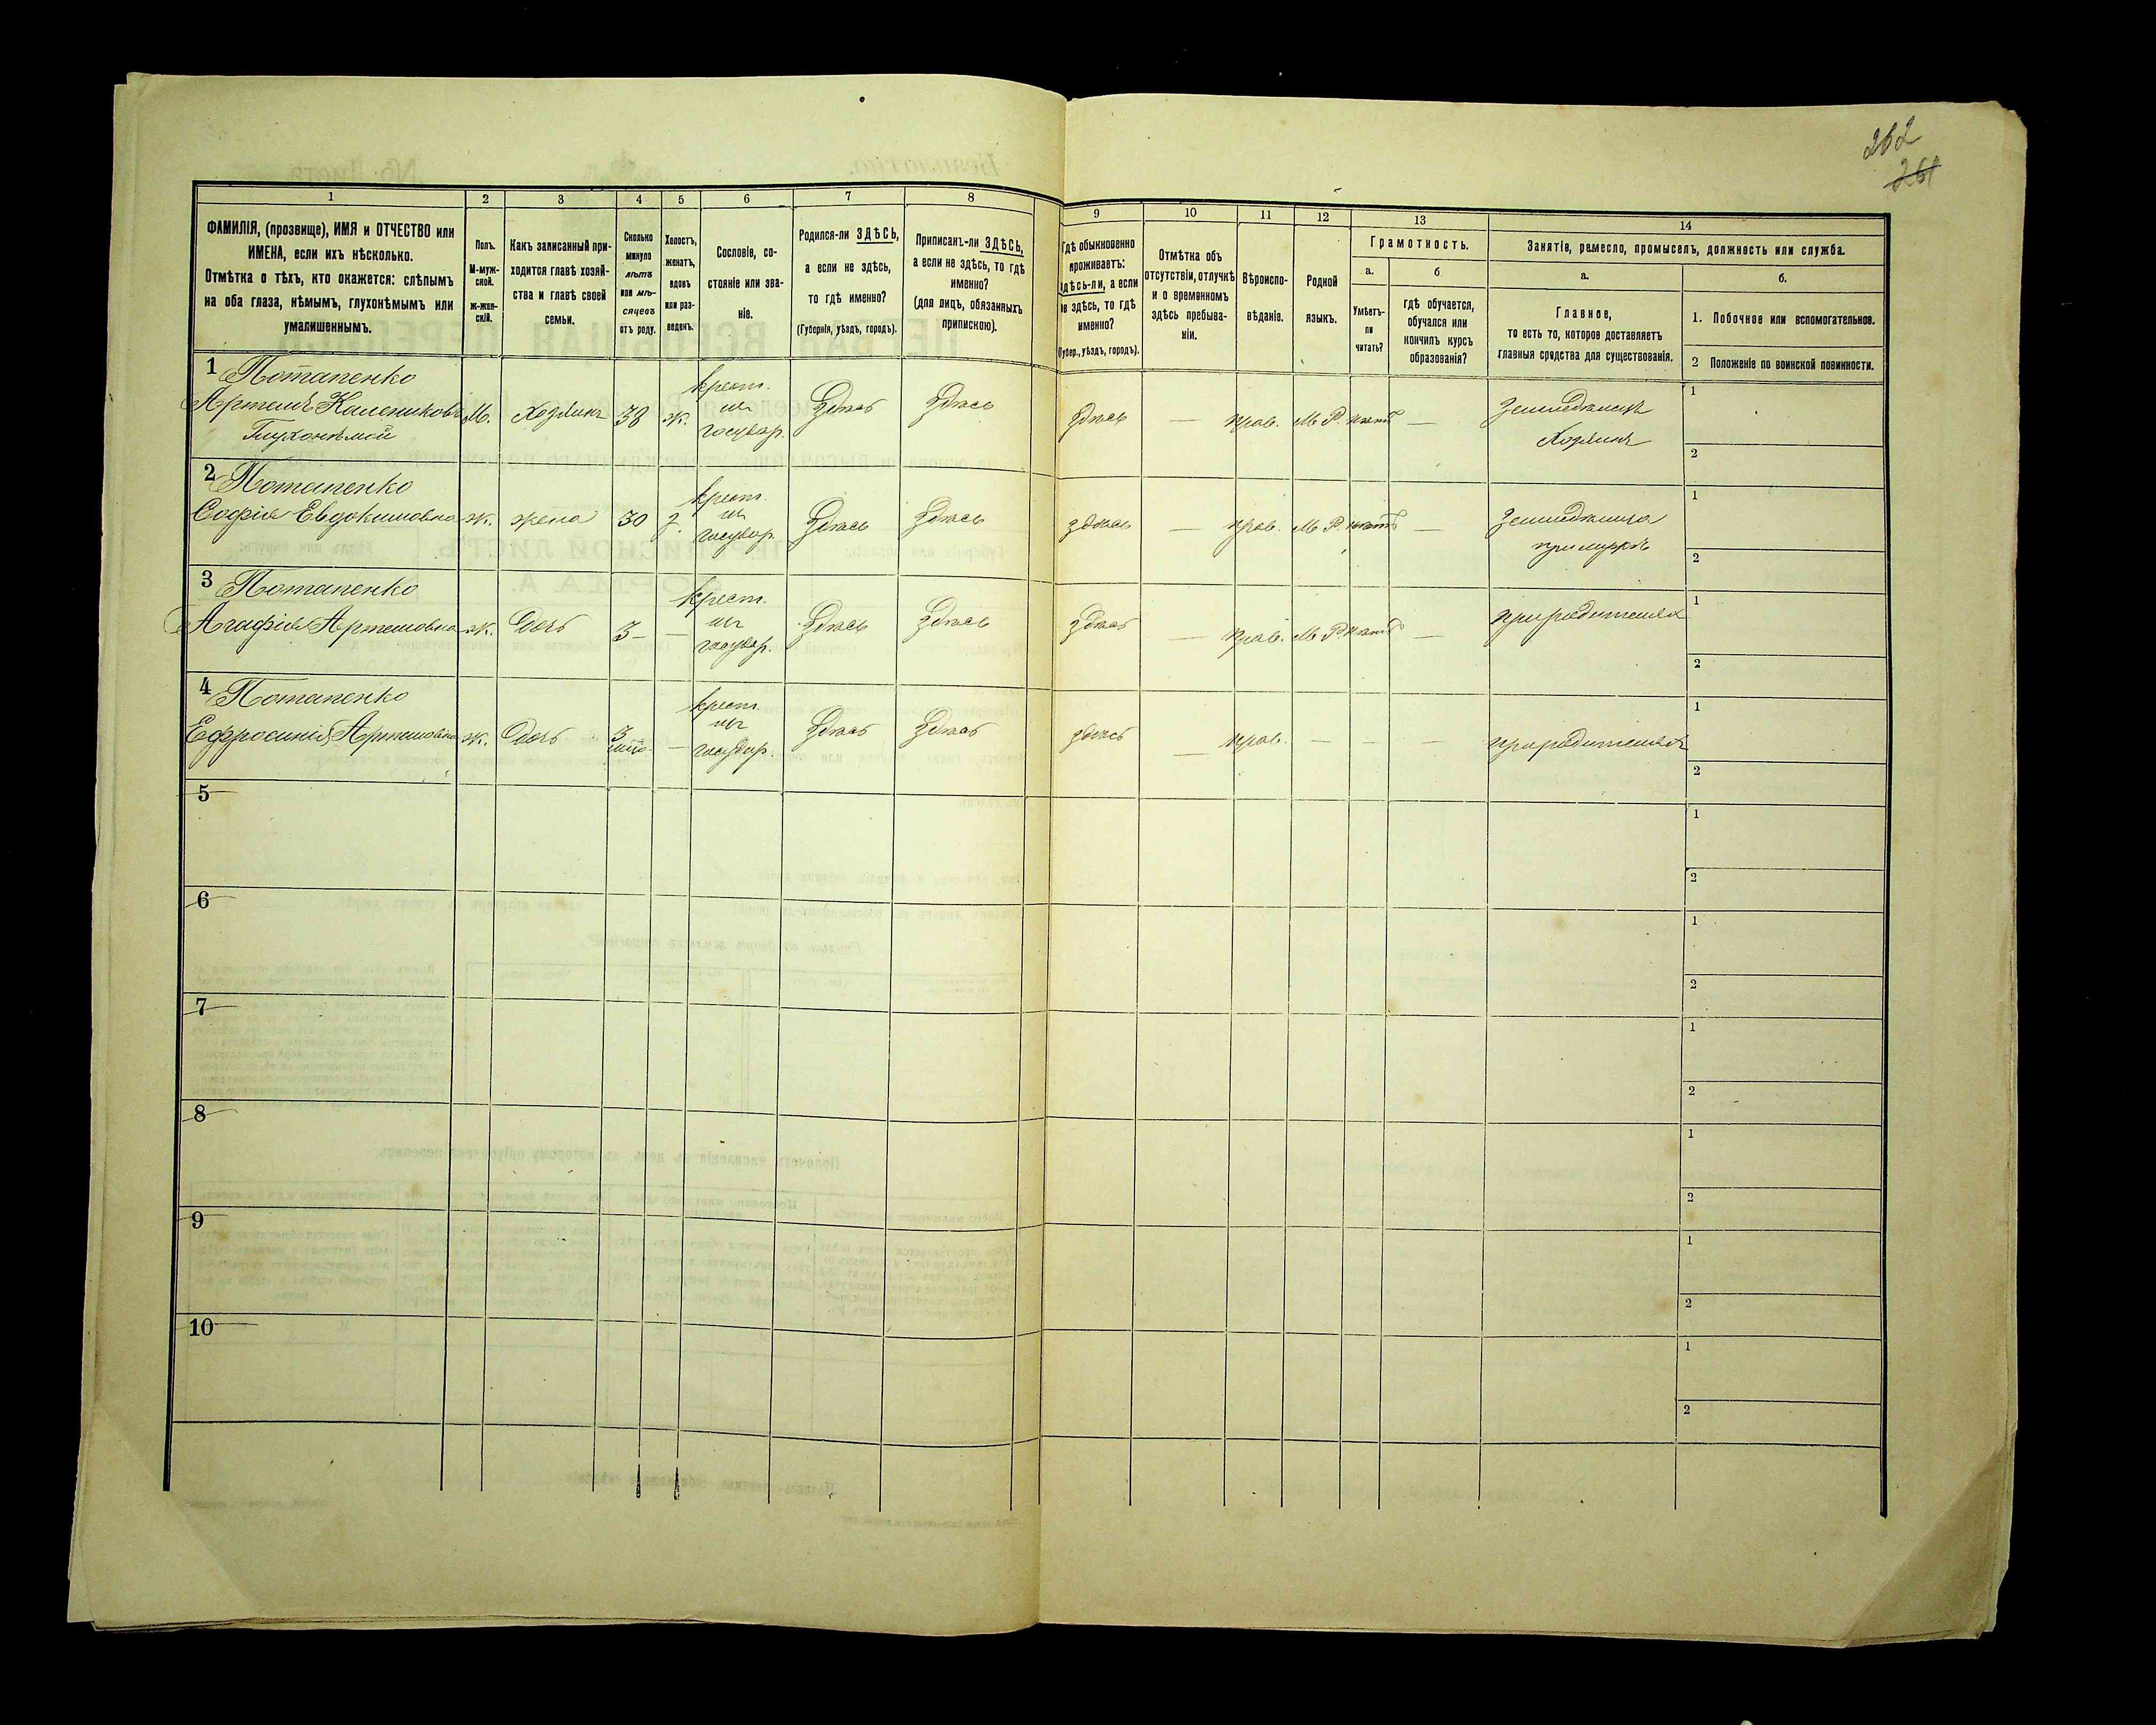 262
261
1
2
3
4
5
6
7
8
9
10
11
12
13
14
ФАМИЛІЯ, (прозвище), ИМЯ и ОТЧЕСТВО или
ИМЕНА, если ихъ нѣсколько.
Отмѣтка о тѣхъ, кто окажется: слѣпымъ
на оба глаза, нѣмымъ, глухонѣмымъ или
умалишеннымъ.
Полъ.
М-муж-
ской.
Ж-жен-
скій.
Какъ записанный при-
ходится главѣ хозяй-
ства и главѣ своей
семьи.
Сколько
минуло
лѣтъ
или мѣ-
сяцевъ
отъ роду.
Холостъ,
женатъ,
вдовъ
или раз-
веденъ.
Сословіе, со-
стояніе или зва-
ніе.
Родился-ли ЗДѢСЬ,
а если не здѣсь,
то гдѣ именно?
(Губернія, уѣздъ, городъ).
Приписанъ-ли ЗДѢСЬ,
а если не здѣсь, то гдѣ
именно?
(для лицъ, обязанныхъ
припискою).
Гдѣ обыкновенно
проживаетъ:
здѣсь-ли, а если
не здѣсь, то гдѣ
именно?
(Губер., уѣздъ, городъ).
Отмѣтка объ
отсутствіи, отлучкѣ
и о временномъ
здѣсь пребыва-
ніи.
Вѣроиспо-
вѣданіе.
Родной
языкъ.
Грамотность.
а.
Умѣетъ-
ли
читать?
б
гдѣ обучается,
обучался или
кончилъ курсъ
образованія?
Занятіе, ремесло, промыселъ, должность или служба.
а.
Главное,
то есть то, которое доставляетъ
главныя средства для существованія.
б.
1. Побочное или вспомогательное.
2 Положеніе по воинской повинности.
1 Потапенко
Артемъ Калениковъ М. Хозяинъ 38 ж. крест. изъ государ. Здѣсь Здѣсь здѣсь — прав. М.Р. нѣтъ — Земледѣлецъ
Глухонѣмой Хозяинъ
1
2
2 Потапенко
Софія Евдокимовна ж. жена 30 з. крест. изъ государ. Здѣсь Здѣсь здѣсь — прав. М.Р. нѣтъ — Земледѣлица
при мужѣ
1
2
3 Потапенко
Агафія Артемовна ж. Дочь 3 — — крест. изъ государ. Здѣсь Здѣсь здѣсь — прав. М.Р. нѣтъ — при родителяхъ
1
2
4 Потапенко
Ефросинія Артемовна ж. Дочь 3 — крест. изъ государ. Здѣсь Здѣсь здѣсь — прав. — — — при родителяхъ
1
2
5
1
2
6
1
2
7
1
2
8
1
2
9
1
2
10
1
2